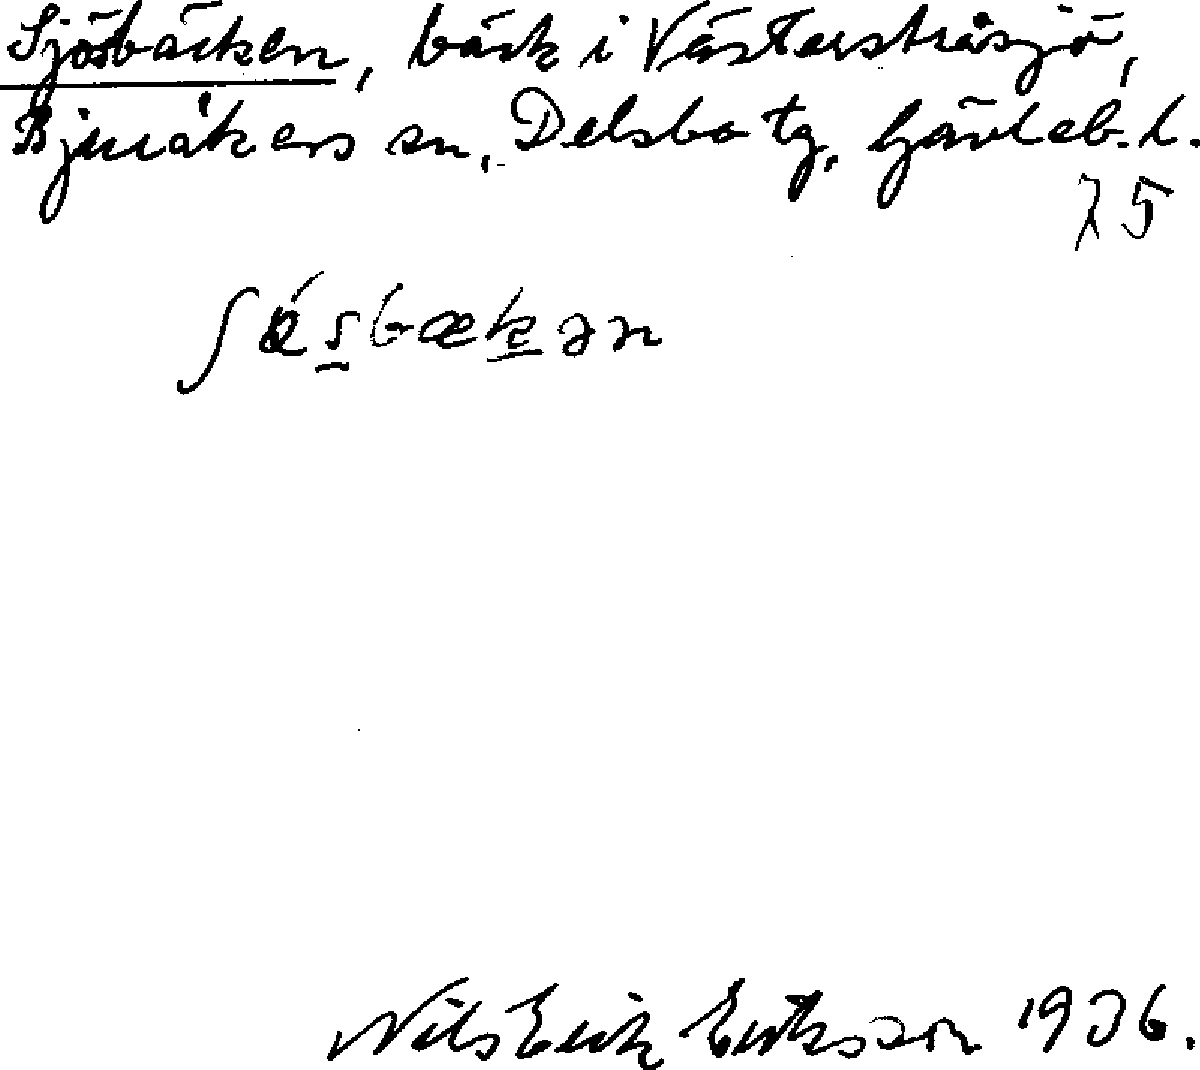 Sjösbäcken, bäck i Västerstråsjö,
Bjuråkers sn, Delsbo tg, Gävleb. l.
75
ʃǿsbækən
Nils Erik Eriksson 1936.